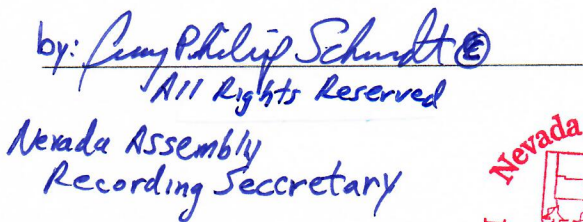 by: Philip Schmidt ©
All Rights Reserved
Nevada Assembly
Recording Seccretary
Nevada